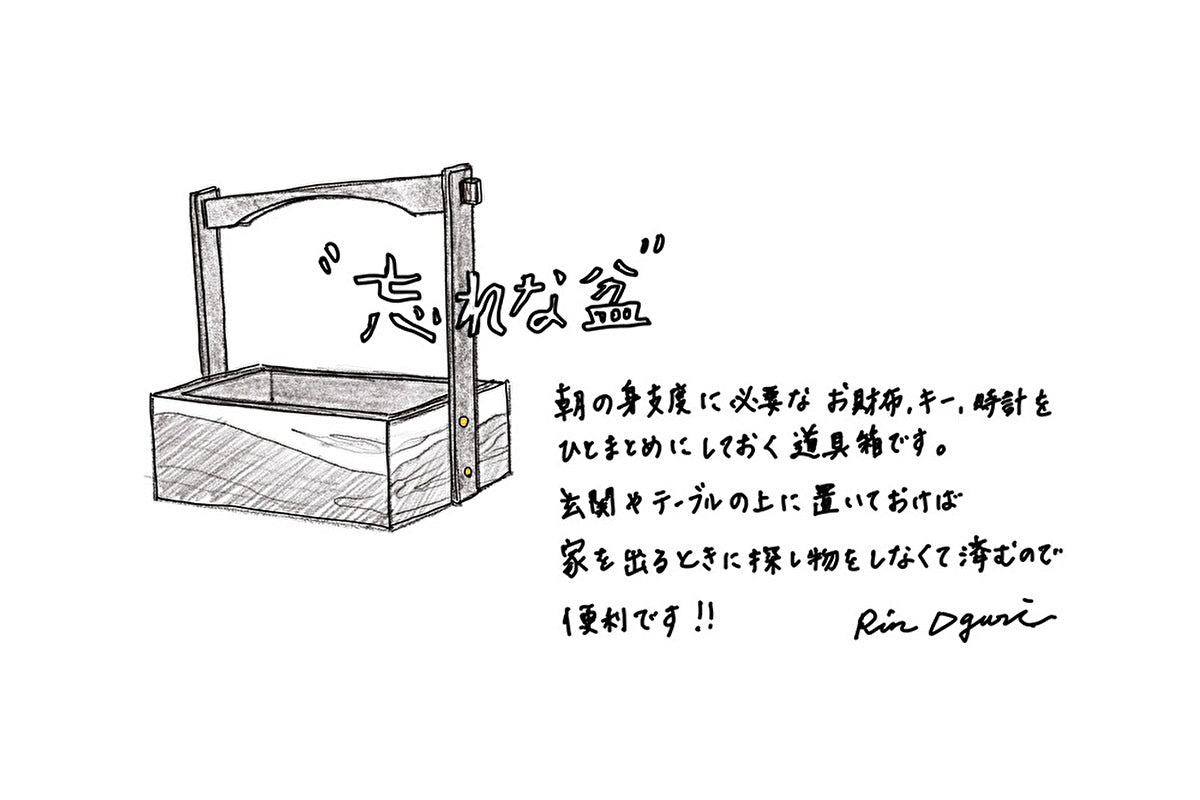 ”忘れな盆”
朝の身支度に必要なお財布、キー、時計を
ひとまとめにしておく道具箱です。
玄関やテーブルの上に置いておけば
家を出るときに探し物をしなくて済むので
便利です!!
Rin Oguri